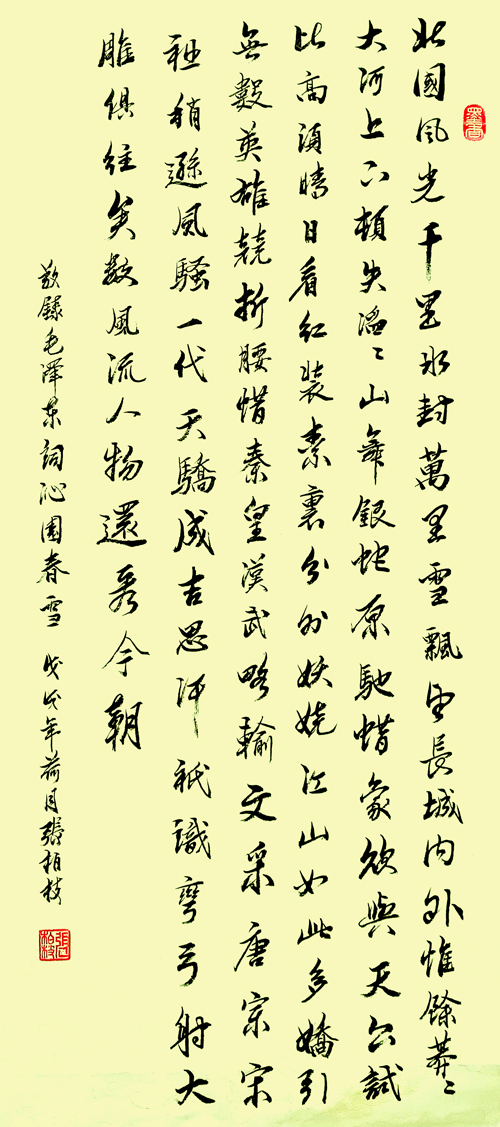 北國風光千里冰封萬里雪飄望長城内外惟餘莽〻
大河上下頓失滔〻山舞銀蛇原馳蜡象欲與天公試
比高須晴日看紅裝素裏分外妖嬈江山如此多嬌引
無數英雄競折腰惜秦皇漢武略輸文采唐宗宋
祖稍遜風騷一代天驕成吉思汗祇識彎弓射大
雕俱往矣數風流人物還看今朝
敬錄毛澤東詞沁園春雪 戊戌年荷月張柏枝
張柏枝